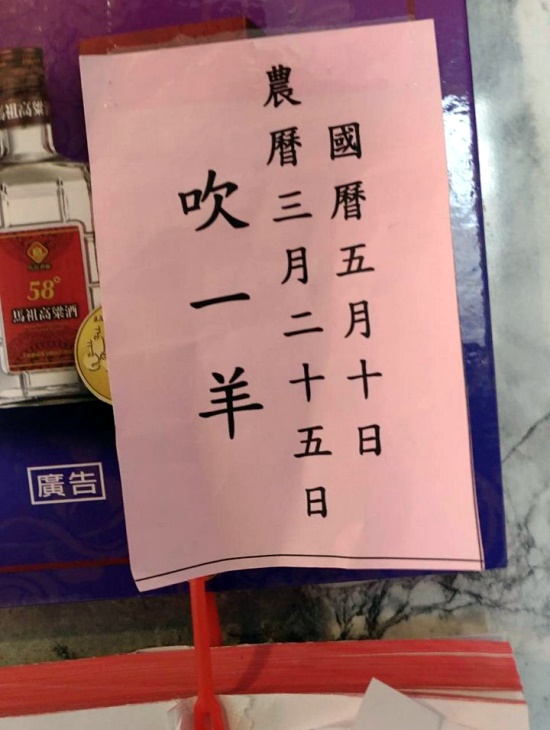 國曆五月十日
農曆三月二十五日
吹一羊
58°
馬祖高粱酒
廣告